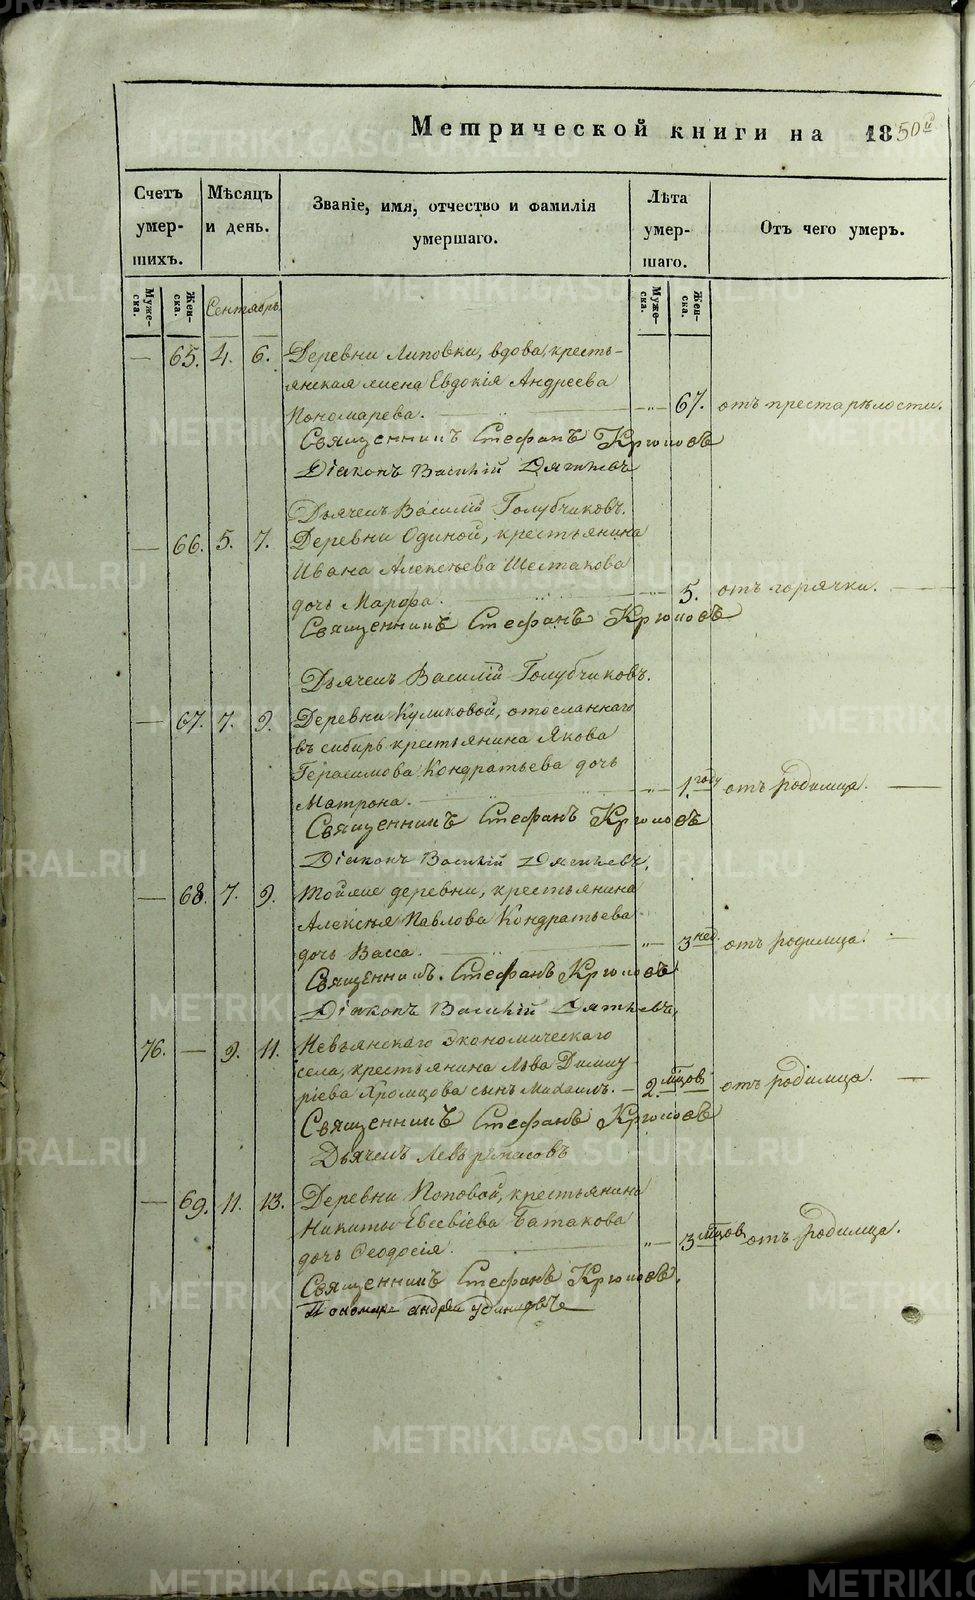 Метрической книги на 1850й
Счетъ умер- шихъ.
Мѣсяцъ и день.
Званіе, имя, отчество и фамилія умершаго.
Лѣта умер- шаго.
Отъ чего умеръ.
Муже- ска. Жен- ска. Сентябрь Муже- ска. Жен- ска.
— 65. 4. 6. Деревни Липовки, вдова, кресть-
янская жена Евдокія Андреева
Пономарева. — „ — 67. отъ престарѣлости.
Священникъ Стефанъ Крюковъ
Діаконъ Василій
Дьячекъ Василій Голубчиковъ.
— 66. 5. 7. Деревни Одиной, крестьянина
Ивана Алексѣева Шестакова
дочь Марфа. — „ — 5. отъ горячки. —
Священникъ Стефанъ Крюковъ
Дьячекъ Василій Голубчиковъ.
— 67. 7. 9. Деревни Куликовой, отосланнаго
въ сибирь крестьянина Якова
Герасимова Кондратьева дочь
Матрона. — „ — 1. году отъ родимца. —
Священникъ Стефанъ Крюковъ
Діаконъ Василій
— 68. 7. 9. Тойже деревни, крестьянина
Алексѣя Павлова Кондратьева
дочь Васса. — „ — 3 нед. отъ родимца. —
Священникъ. Стефанъ Крюковъ
Діаконъ Василій
76. — 9. 11. Невьянскаго Экономическаго
села, крестьянина Льва Димит
ріева Хромцова сынъ Михаилъ. — 2. мцов отъ родимца. —
Священникъ Стефанъ Крюковъ
Дьячекъ Левъ
— 69. 11. 13. Деревни Поповой, крестьянина
Никиты Евсевіева Батакова
дочь Ѳеодосія. — „ — 3 мцов отъ родимца.
Священникъ Стефанъ Крюковъ.
Пономарь андрей удинцовъ
METRIKI.GASO-URAL.RU